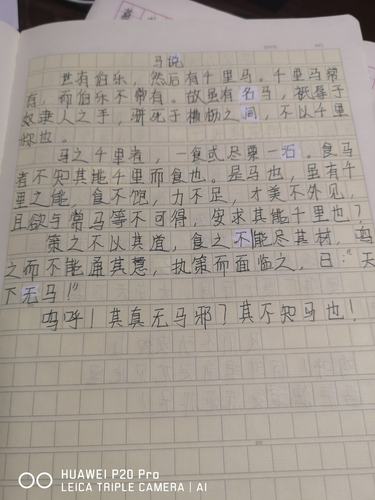 马说
世有伯乐，然后有千里马。千里马常
有，而伯乐不常有。故虽有名马，祇辱于
奴隶人之手，骈死于槽枥之间，不以千里
称也。
马之千里者，一食或尽粟一石。食马
者不知其能千里而食也。是马也，虽有千
里之能，食不饱，力不足，才美不外见，
且欲与常马等不可得，安求其能千里也？
策之不以其道，食之不能尽其材，鸣
之而不能通其意，执策而面临之，曰："天
下无马！"
呜呼！其真无马邪？其不知马也！
HUAWEI P20 Pro
LEICA TRIPLE CAMERA | AI